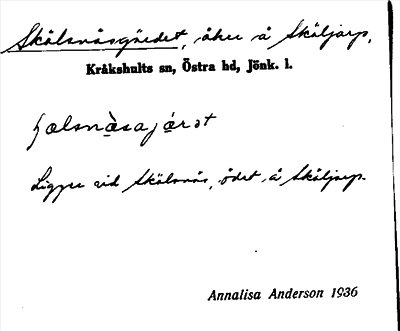 Skälsnäsgärdet, åker å Skäljarp,
Kråkshults sn, Östra hd, Jönk. l.
Ligger vid Skälsnäs, ödet, å Skäljarp.
Annalisa Anderson 1936